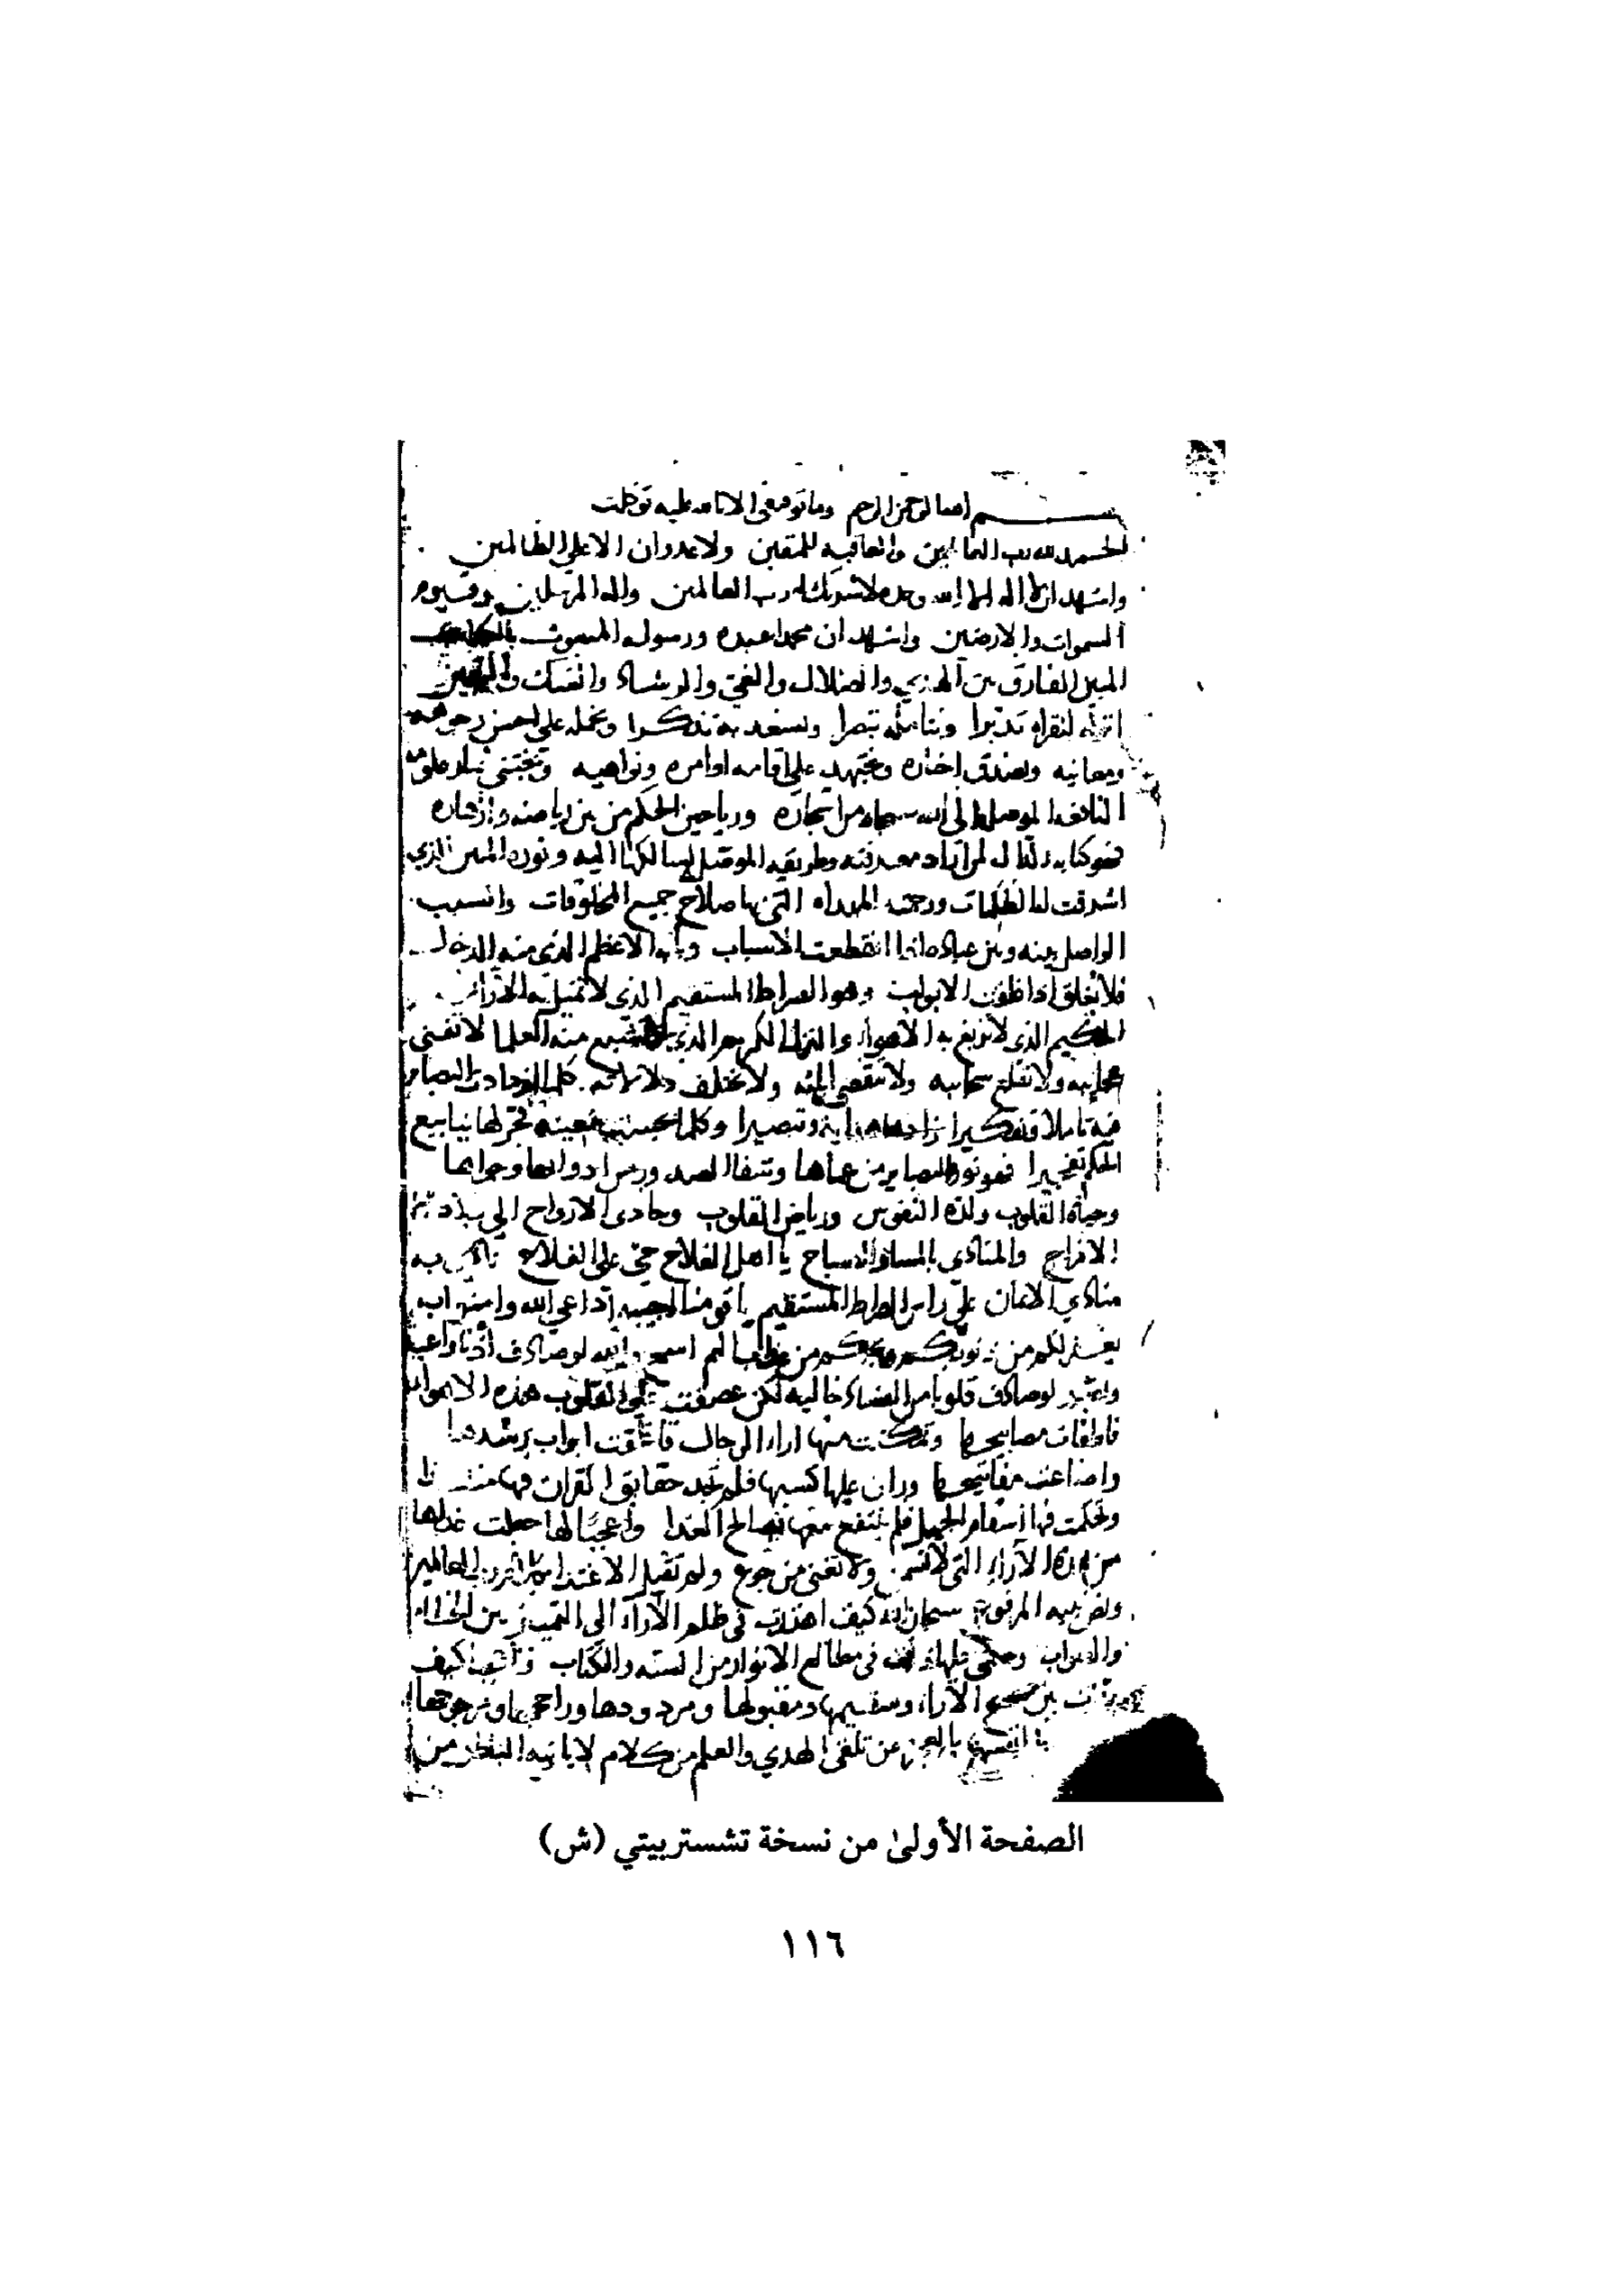 بسم الله الرحمن الرحيم وما توفيقي الا بالله عليه توكلت
الحمد لله رب العالمين والعاقبه للمتقين ولا عدوان الا على الظالمين
واشهد ان لا اله الا الله وحده لا شريك له رب العالمين واله المرسلين وقيوم
السموات والارضين واشهد ان محمدا عبده ورسوله المبعوث بالكتاب
المبين الفارق بين الهدي والضلال والغي والرشاد والشك واليقين
انزله لنقراه تدبرا ونتامله تبصرا ونسعد به تذكرا ونحمله على احسن وجوهه
ومعانيه ونصدق اخباره ونجتهد على اقامه اوامره ونواهيه ونجتني ثمار علومه
النافعه الموصله الى الله سبحانه من اشجاره ورياحين الحكم من بين رياضه وازهاره
فهو كتابه الدال لمن اراد معرفته وطريقه الموصل لسالكها اليه ونوره المبين الذي
اشرقت له الظلمات ورحمته المهداه التي بها صلاح جميع المخلوقات والسبب
الواصل بينه وبين عباده اذا انقطعت الاسباب وبابه الاعظم الذي منه الدخول
فلا يغلق اذا غلقت الابواب وهو الصراط المستقيم الذي لا تميل به الاراء
الحكيم الذي لا تزيغ به الاهواء والنزل الكريم الذي لا يشبع منه العلما لا تفنى
عجايبه ولا تقلع سحايبه ولا تنقضي اياته ولا تختلف دلالاته كلما ازدادت البصاير
فيه تاملا وتفكيرا زادها هداية وتبصيرا وكلما بجست معينه فجر لها ينابيع
الحكم تفجيرا فهو نور البصاير من عماها وشفا الصدور من ادوائها وجواها
وحياه القلوب ولذه النفوس ورياض القلوب وحادي الارواح الي بلاد
الافراح والمنادي بالمساء والصباح يا اهل الفلاح حي على الفلاح نادى به
منادي الايمان على راس الصراط المستقيم يا قومنا اجيبوا داعي الله وامنوا به
يغفر لكم من ذنوبكم ويجركم من عذاب اليم اسمع والله لو صادف اذنا واعيه
وبصر لو صادف قلوبا من الفساد خاليه لكن عصفت على القلوب هذه الاهواء
فاطفات مصابيحها وتمكنت منها اراء الرجال فاغلقت ابواب رشدها
واضاعت مفاتيحها وران عليها كسبها فلم تجد حقايق القران فيها منفذا
وتحكمت فيها اسقام الجهل فلم تنتفع معها بصالح الغذا واعجبا لها جعلت غذاها
من هذه الآراء التي لا تسمن ولا تغني من جوع ولم تقبل الاغتذا بكلام رب العالمين
ونص نبيه المرفوع سبحان الله كيف اهتدت في ظلم الآراء الى التمييز بين الخطاء
والصواب وخفي عليها ذلك في مطالع الانوار من السنه والكتاب واعجبا كيف
ميزت بين صحيح الآراء وسقيمها ومقبولها ومردودها وراجحها ومرجوحها
انفسها بالعجز عن تلقي الهدي والعلم من كلام لا ياتيه الباطل من
الصفحة الأولىٰ من نسخة تشستربيتي (ش)
١١٦